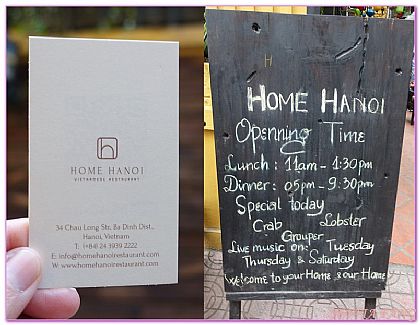 HOME HANOI
VIETNAMESE RESTAURANT
34 Chau Long Str, Ba Dinh Dist.,
Hanoi, Vietnam
T: (+84) 24 3939 2222
E: info@homehanoirestaurant.com
W: www.homehanoirestaurant.com
HOME HANOI
Openning Time
Lunch : 11am - 1:30pm
Dinner : 05pm - 9:30pm
Special today
Crab Lobster
Grouper
Live music on: Tuesday
Thursday & Saturday
Welcome to your Home & our Home